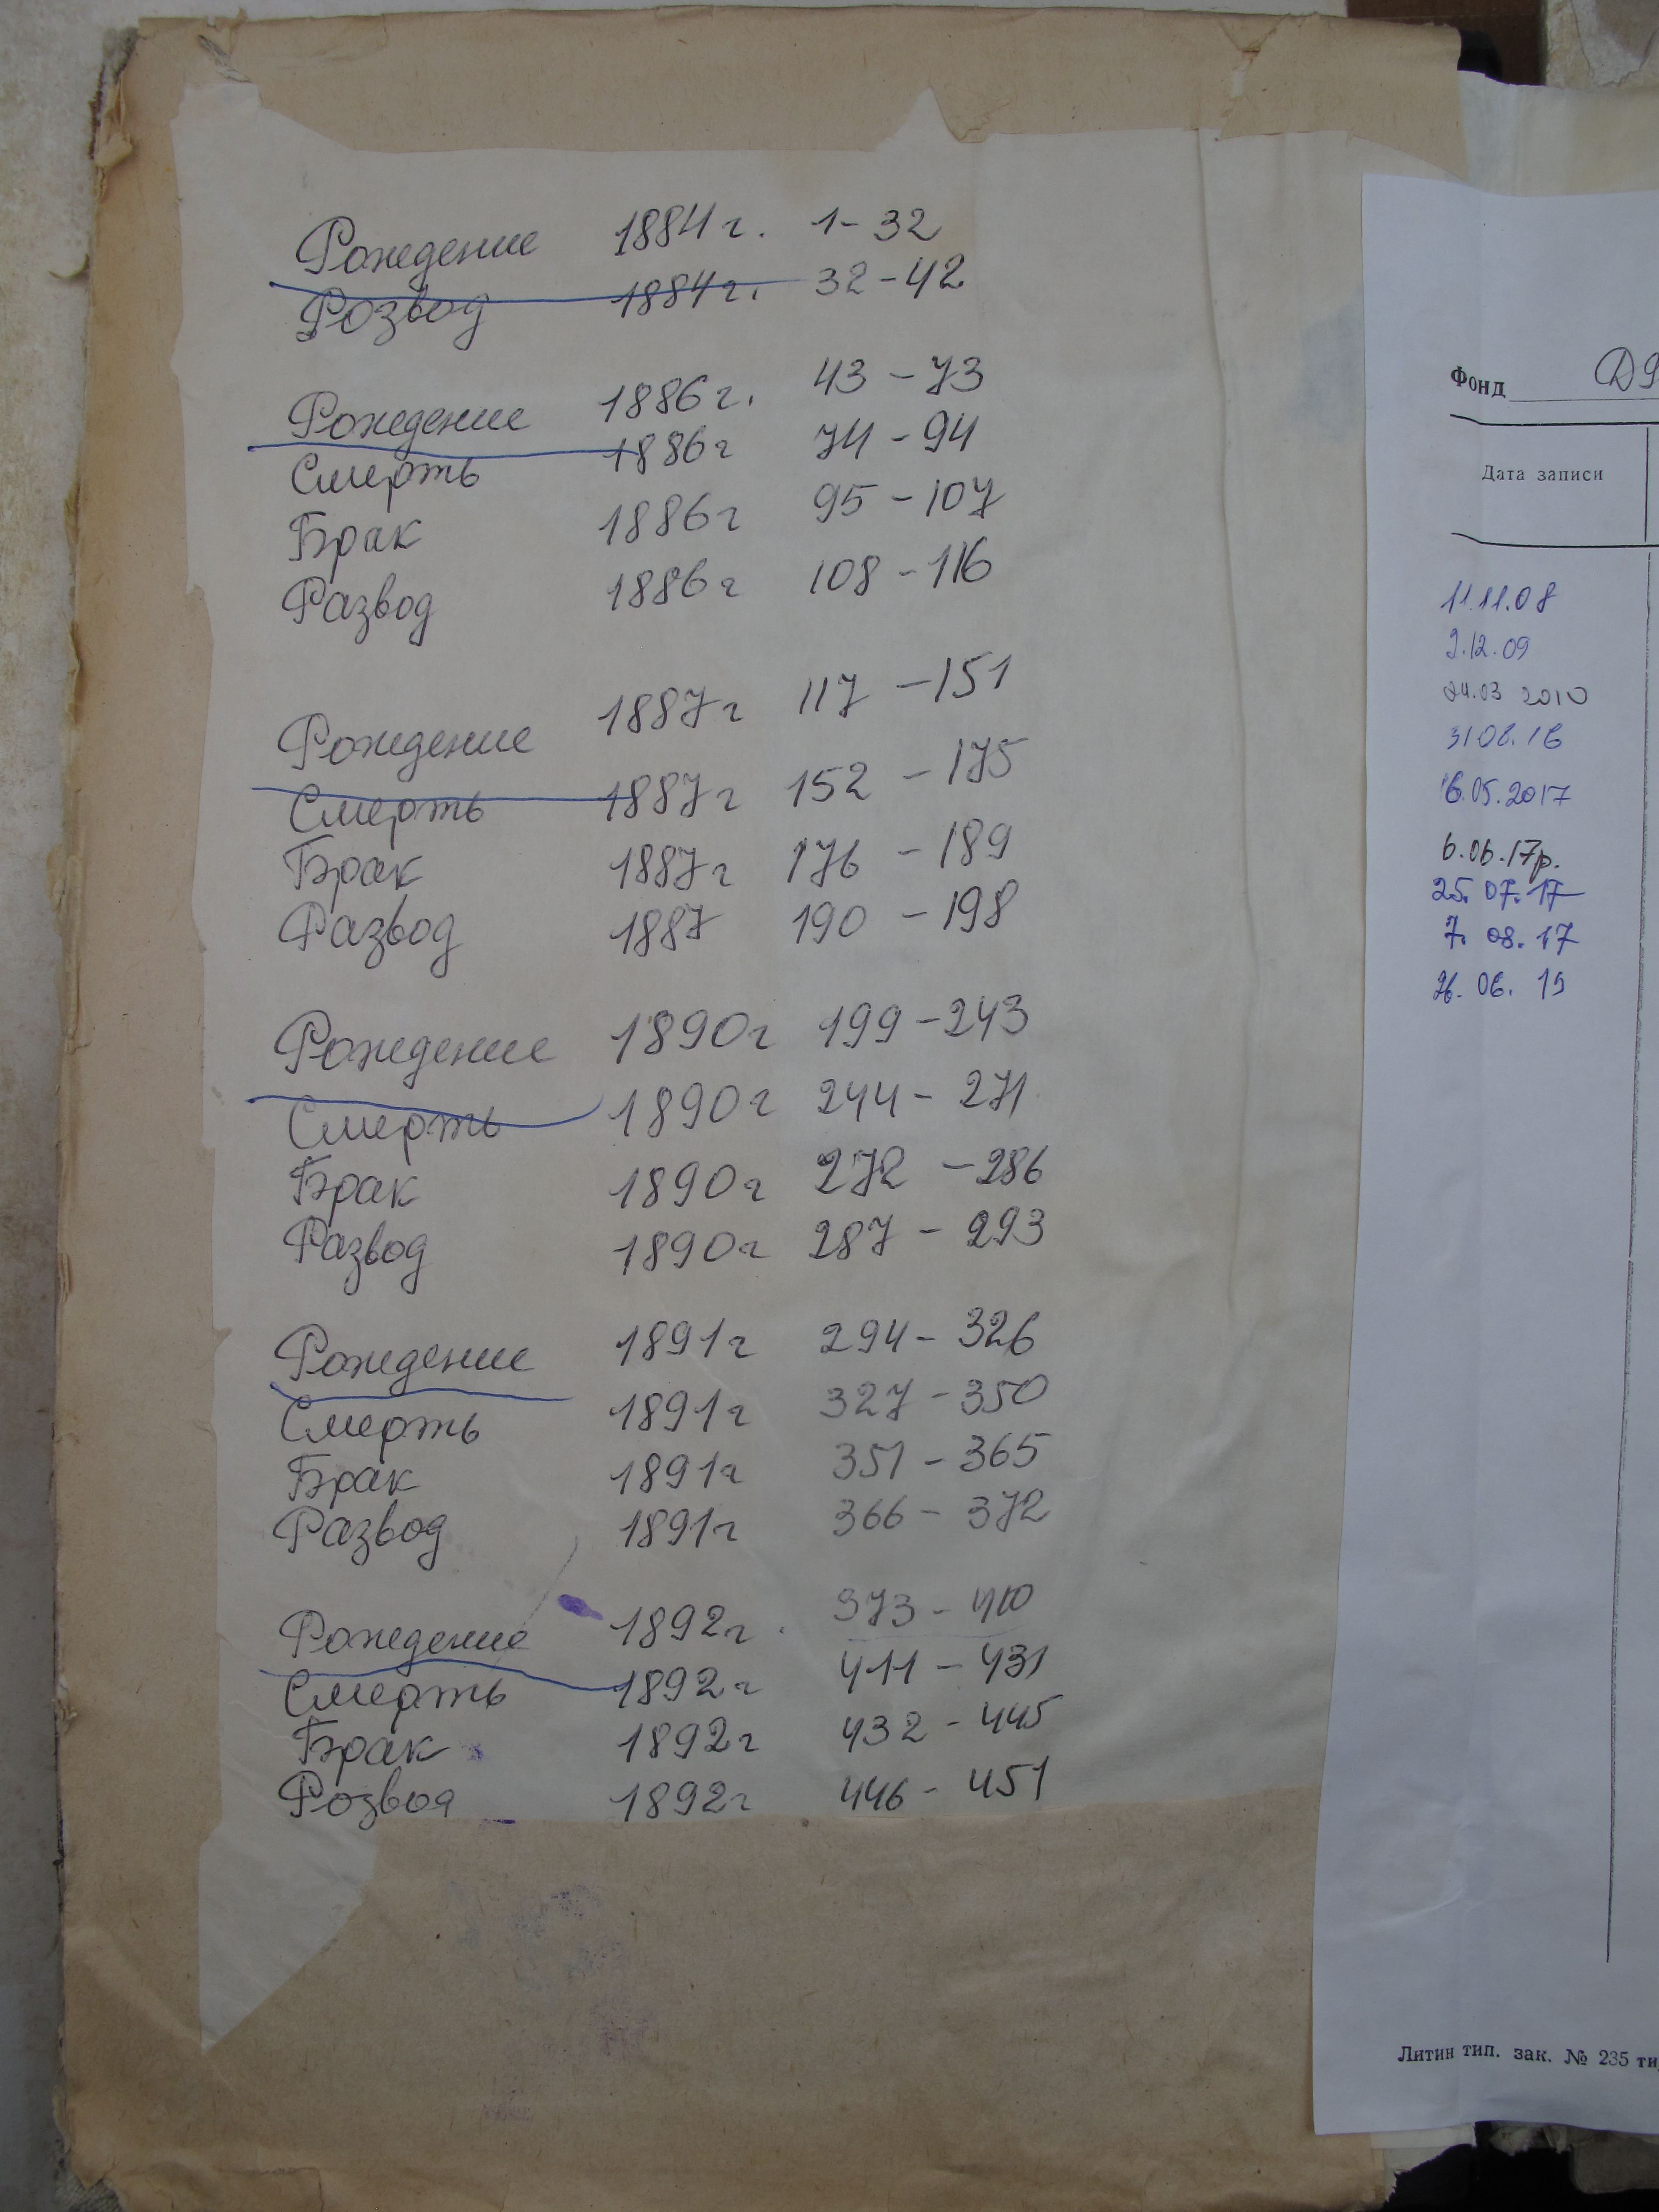 Рождение 1884 г. 1-32
Розвод 1884 г. 32-42
Рождение 1886 г. 43-73
Смерть 1886 г 74-94
Брак 1886 г 95-107
Развод 1886 г 108-116
Рождение 1887 г 117-151
Смерть 1887 г 152-175
Брак 1887 г 176-189
Развод 1887 190-198
Рождение 1890 г 199-243
Смерть 1890 г 244-271
Брак 1890 г 272-286
Развод 1890 г 287-293
Рождение 1891 г 294-326
Смерть 1891 г 327-350
Брак 1891 г 351-365
Развод 1891 г 366-372
Рождение 1892 г. 373-410
Смерть 1892 г 411-431
Брак 1892 г 432-445
Розвод 1892 г 446-451
Фонд Д9
Дата записи
11.11.08
2.12.09
24.03 2010
16.05.2017
6.06.17р.
25.07.17
7.08.17
26.06.19
Литин тип. зак. № 235 ти